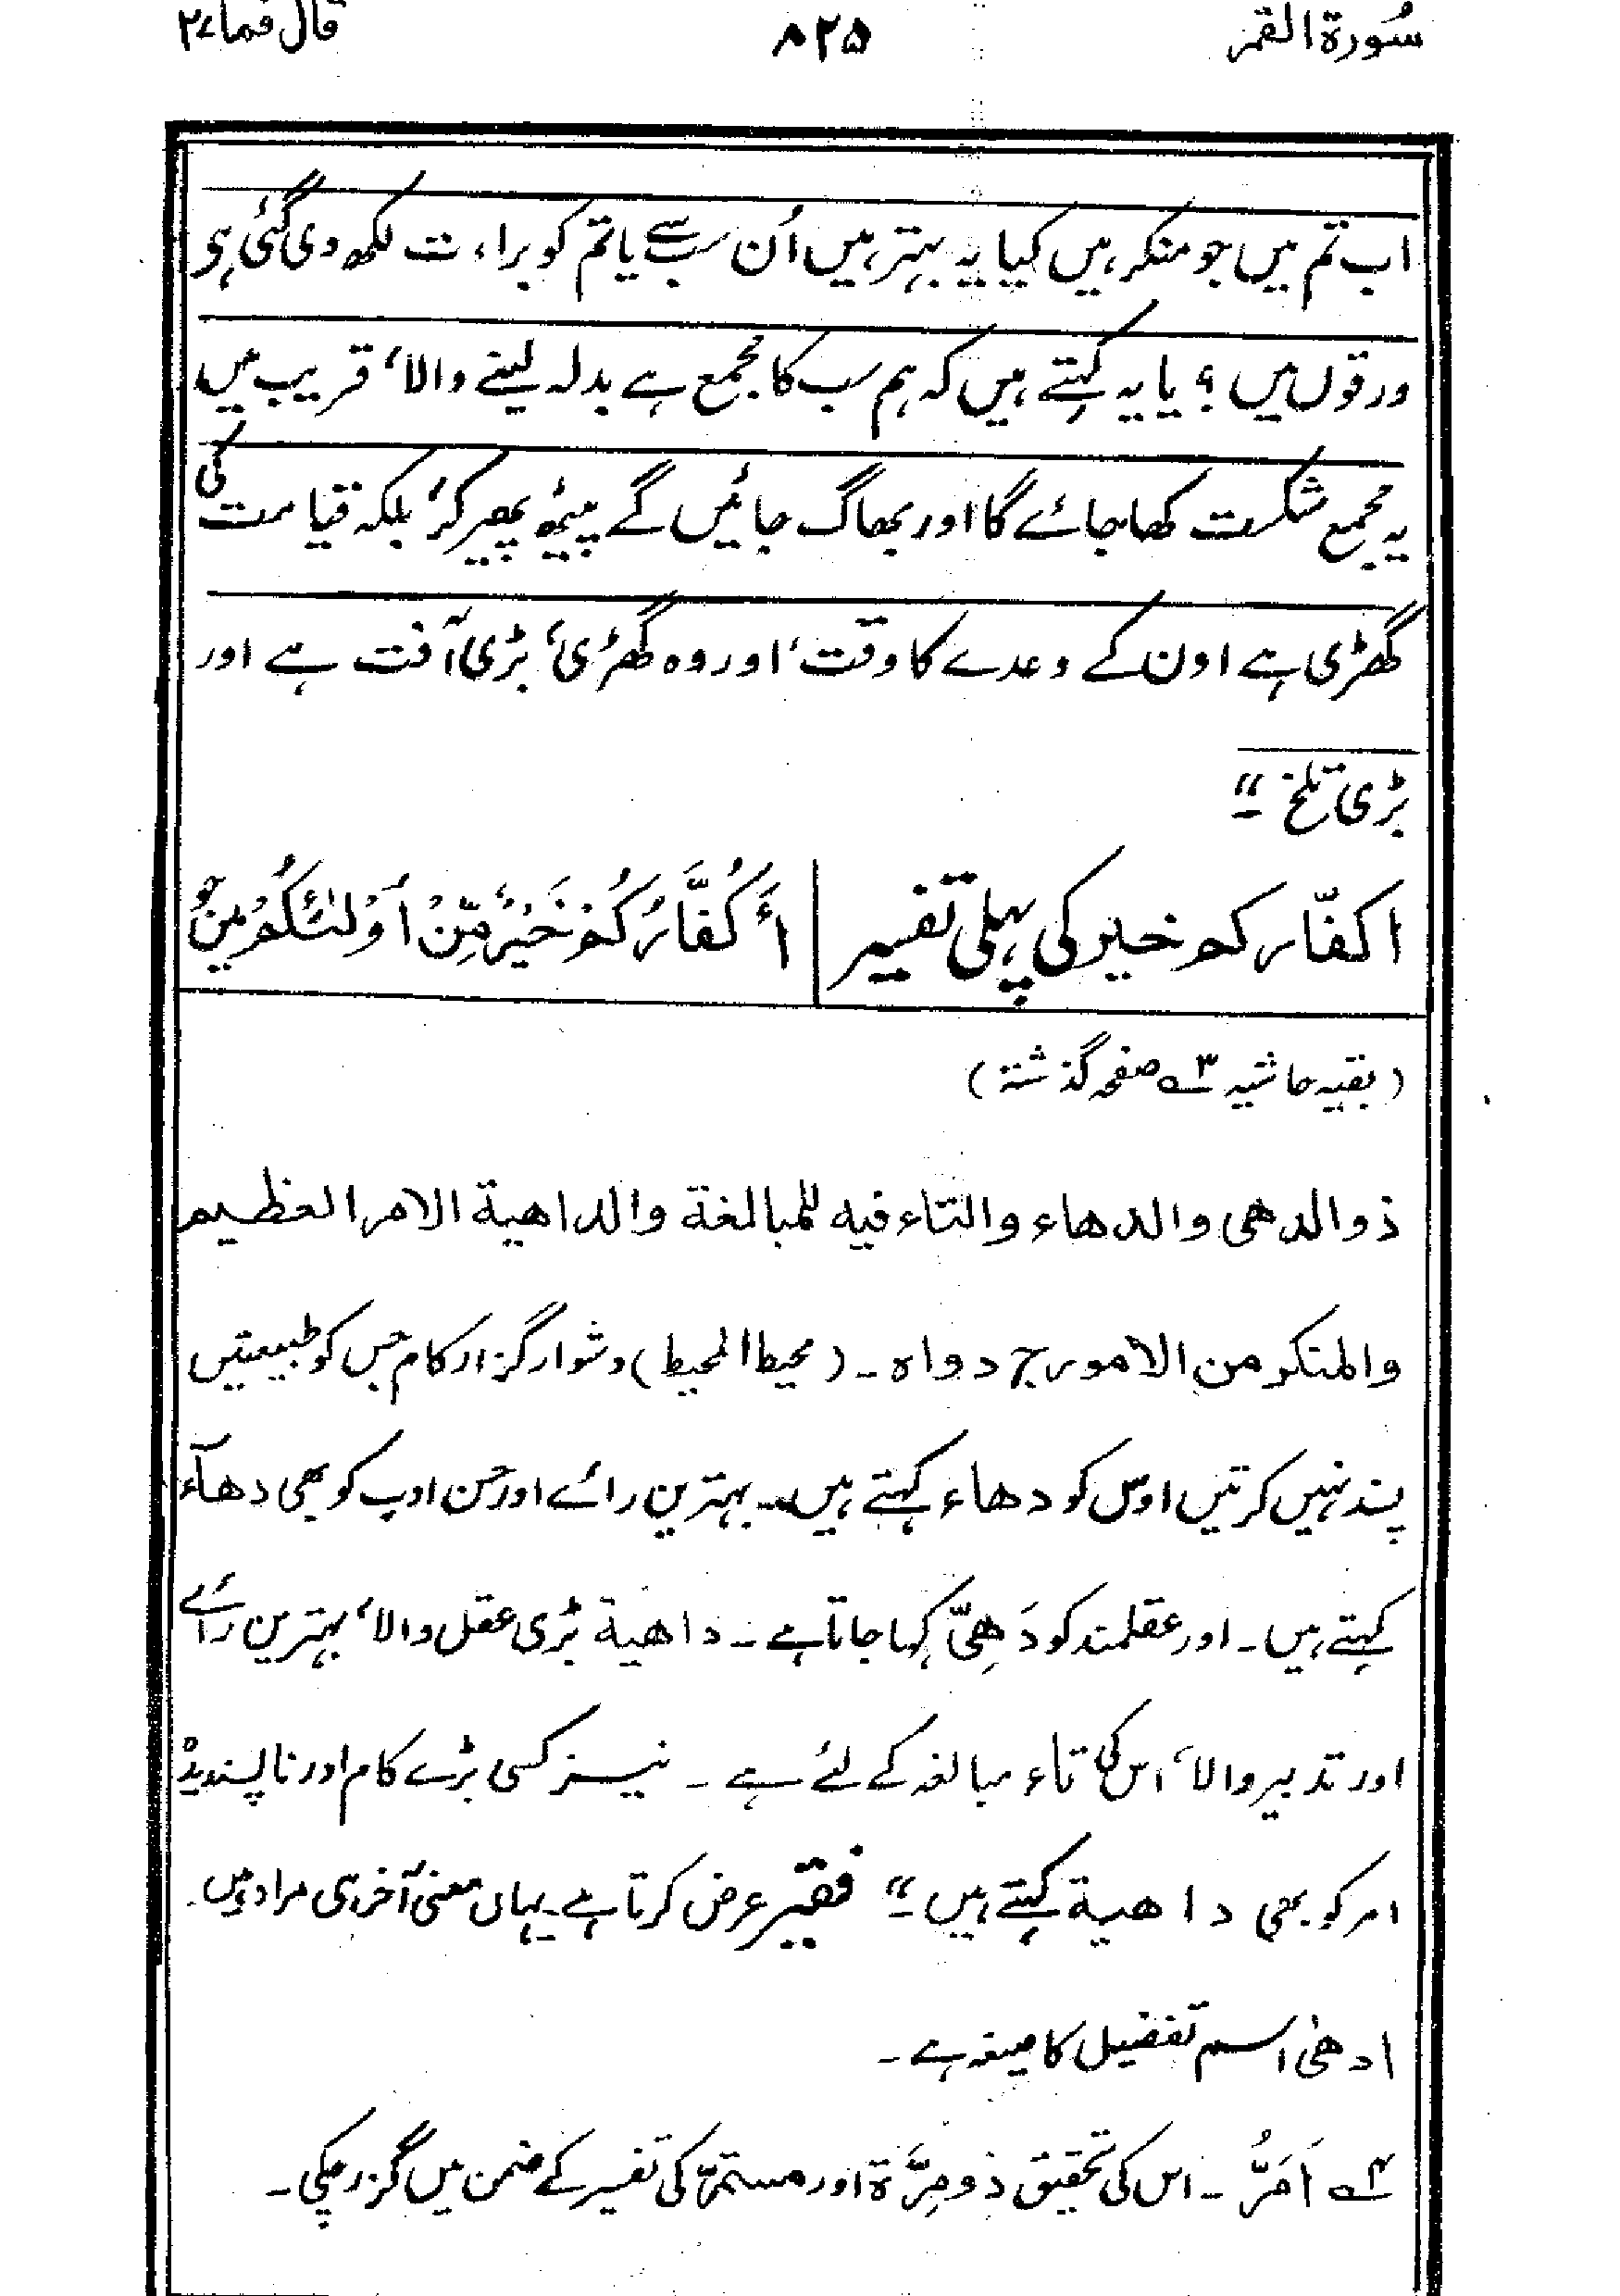 سُورة القمر ۸۲۵ قال فما ۲۷
اب تم میں جو منکر ہیں کیا یہ بہتر ہیں اُن سب سے یا تم کو براءت لکھ دی گئی ہی
ورقوں میں ؟ یا یہ کہتے ہیں کہ ہم سب کا مجمع ہے بدلہ لینے والا، قریب میں
یہ مجمع شکست کھا جائے گا اور بھاگ جائیں گے پیٹھ پھیر کر، بلکہ قیامت کی
گھڑی ہے اون کے وعدے کا وقت، اور وہ گھڑی، بڑی آفت ہے اور
بڑی تلخ ـ"
اکفّارکم خیر کی پہلی تفسیر | أَكُفَّارُكُمْ خَيْرٌ مِّنْ أُولٰئِكُمْ میں جو
(بقیہ حاشیہ ۳ صفحہ گذشتہ)
ذو الدهى والدهاء والتاء فيه للمبالغة والداهية الامر العظيم
والمنكر من الامور ج دواه ـ (محیط المحیط) دشوار گزار کام جس کو طبیعتیں
پسند نہیں کرتیں اوس کو دھاء کہتے ہیں۔ بہترین رائے اور حسن ادب کو بھی دھآء
کہتے ہیں ۔ اور عقلمند کو دَهِیّ کہا جاتا ہے ۔ داهية بڑی عقل والا، بہترین رائے
اور تدبیر والا، اس کی تاء مبالغہ کے لئے ہے ۔ نیز کسی بڑے کام اور ناپسندیدہ
امر کو بھی داهية کہتے ہیں ـ" فقیر عرض کرتا ہے۔ یہاں معنی آخر ہی مراد ہیں۔
ادهیٰ اسم تفضیل کا صیغہ ہے ۔
۴ اَمَرُّ ۔ اس کی تحقیق ذو مِرَّة اور مستمرّ کی تفسیر کے ضمن میں گزر چکی ۔